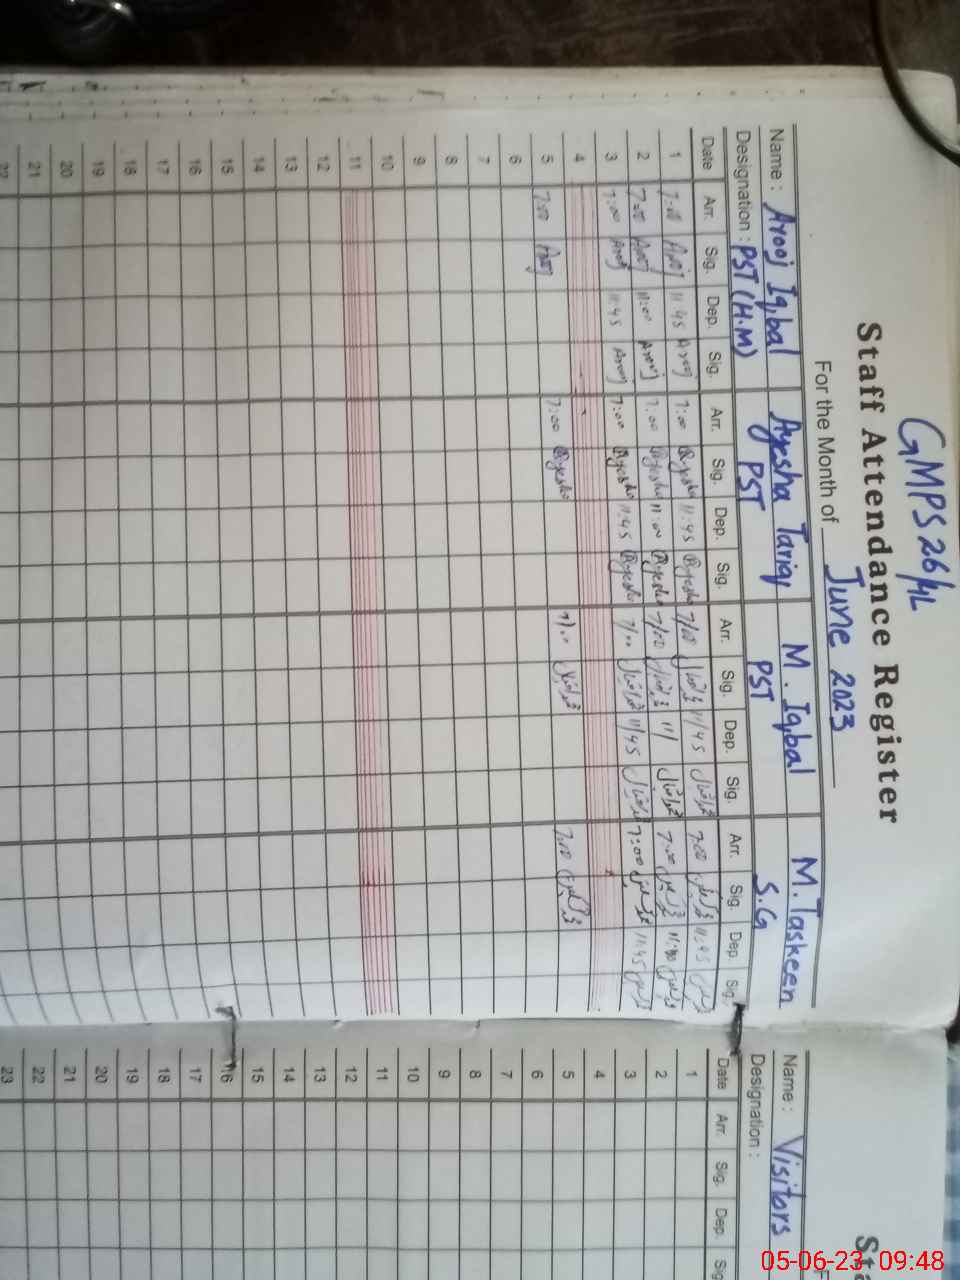 GMPS 26/4L
Staff Attendance Register
For the Month of June 2023
Name : Arooj Iqbal Ayesha Tariq M. Iqbal M. Taskeen
Designation : PST (H.M) PST PST S.G
Date Arr. Sig. Dep. Sig. Arr. Sig. Dep. Sig. Arr. Sig. Dep. Sig. Arr. Sig. Dep. Sig.
1 7:00 Arooj 11:45 Arooj 7:00 Ayesha 11:45 Ayesha 7/00 محمد اقبال 11/45 محمد اقبال 7:00 11:45
2 7:00 Arooj 11:00 Arooj 7:00 Ayesha 11:00 Ayesha 7/00 محمد اقبال 11/ محمد اقبال 7:00 11:00
3 7:00 Arooj 11:45 Arooj 7:00 Ayesha 11:45 Ayesha 7/00 محمد اقبال 11/45 محمد اقبال 7:00 11:45
4
5 7:00 Arooj 7:00 Ayesha 7/00 محمد اقبال 7:00
6
7
8
9
10
11
12
13
14
15
16
17
18
19
20
21
22
Name : Visitors
Designation :
Date Arr. Sig. Dep. Sig
1
2
3
4
5
6
7
8
9
10
11
12
13
14
15
16
17
18
19
20
21
22
23
05-06-23 09:48